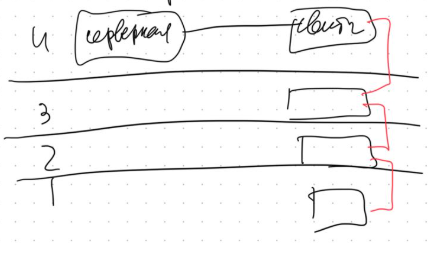 4 серверная свитч
3
2
1